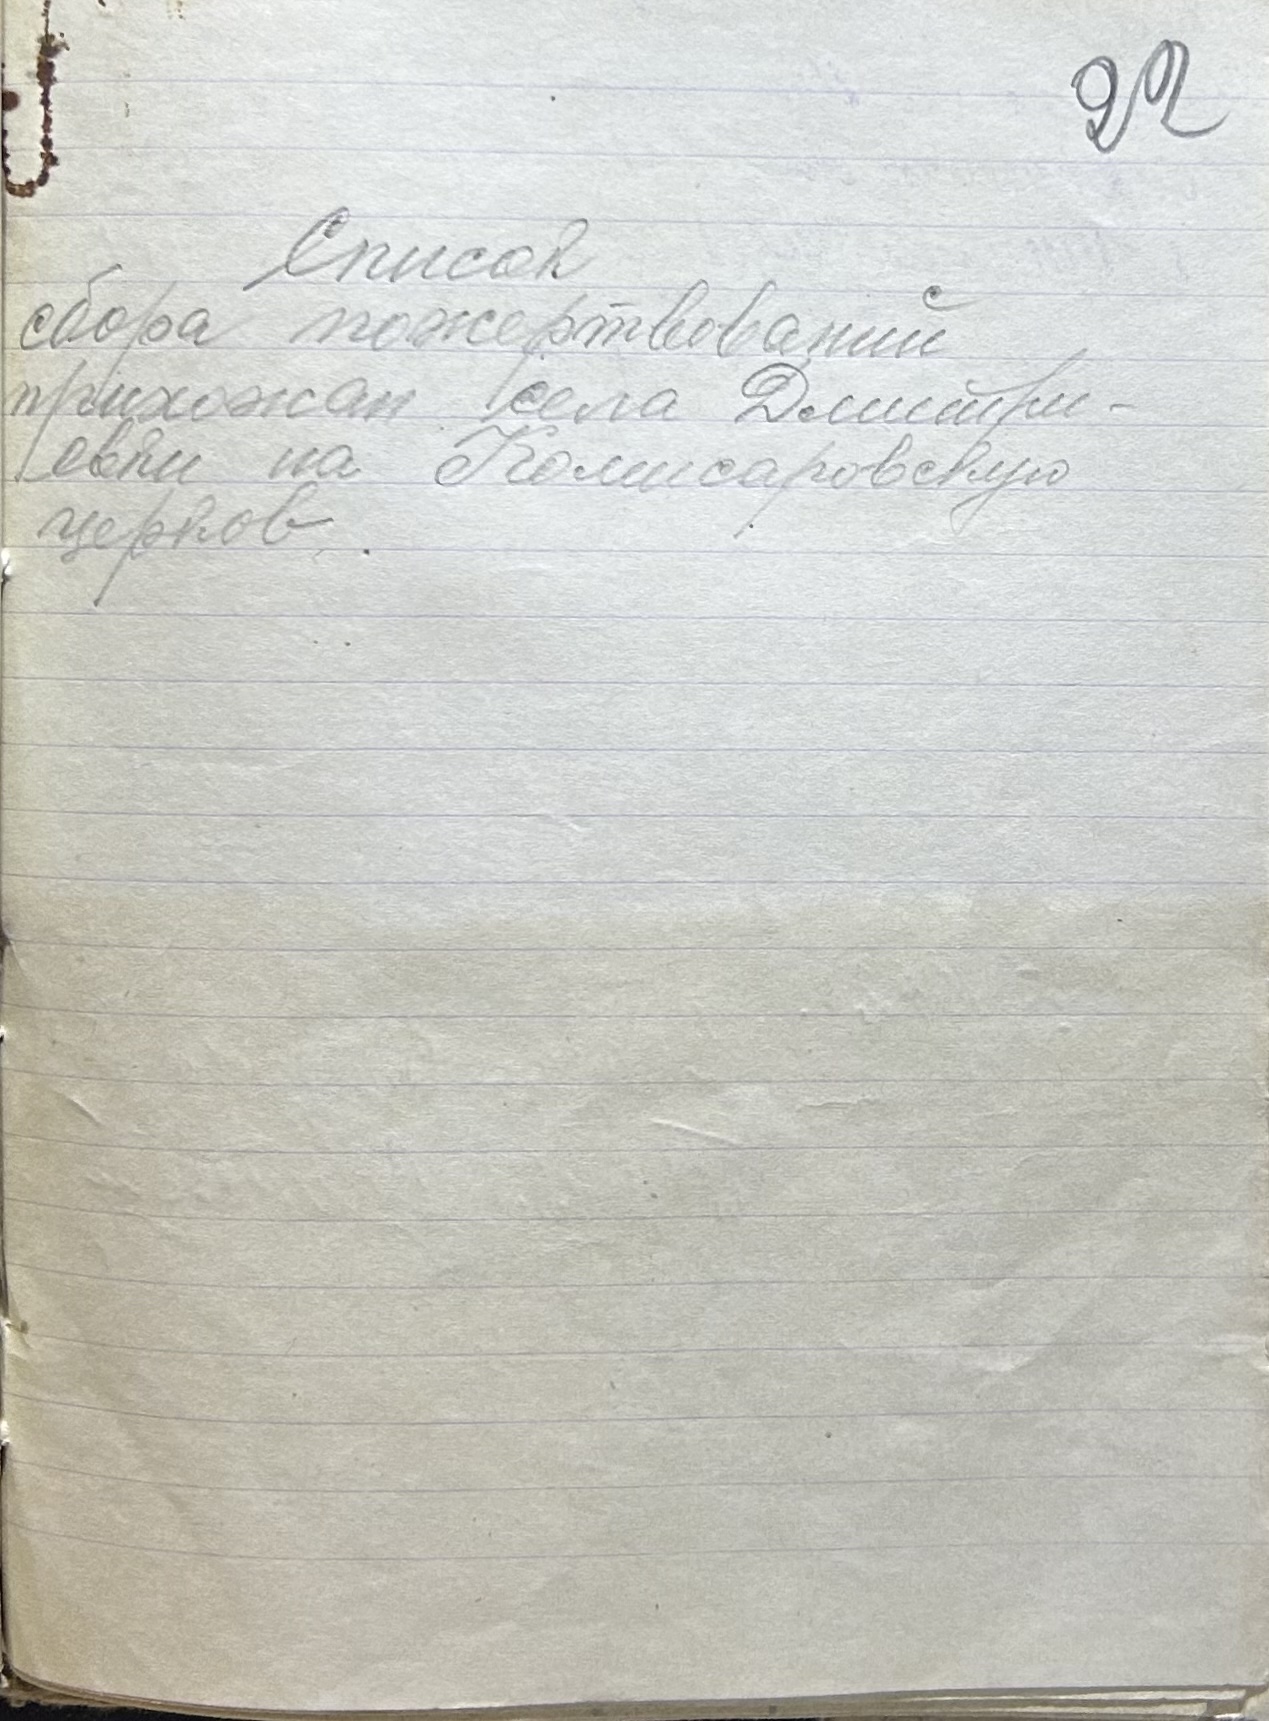 22
Список
сбора пожертвований
прихожан села Дмитри-
евки на Комисаровскую
церков